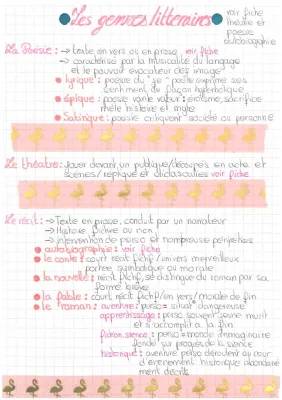 Les genres littéraires
voir fiche
théâtre et
poésie
autobiographie
La Poésie : → texte en vers ou en prose, voir fiche
→ caractérisé par la musicalité du langage
et le pouvoir évocateur des images
lyrique : poésie du "je" poète exprime ses
sentiment de façon hyperbolique
épique : poésie vante valeur : éroïsme, sacrifice
mêle histoire et mythe
Satirique : poésie critiquant société ou personne
Le théâtre : jouer devant un publique / découpés en acte et
scènes / réplique et didascalies voir fiche
Le récit : → Texte en prose, conduit par un narrateur
→ Histoire fictive ou non !
→ intervention de perso et nombreuse péripéties
autobiographie : voir fiche
le conte : court récit fictif / univers merveilleux
portée symbolique ou morale
la nouvelle : récit fictif, se distingue du roman par sa
forme brève
la fable : court récit fictif / en vers / morale de fin
le roman : aventure : perso = situat° dangereuse
apprentissage : perso souvent jeune murit
et s'accomplit à la fin
fiction science : perso = monde immaginaire
fondé sur progrès de la science
historique : aventure perso déroulent au cour
d'évenement historique abondam
ment décrits